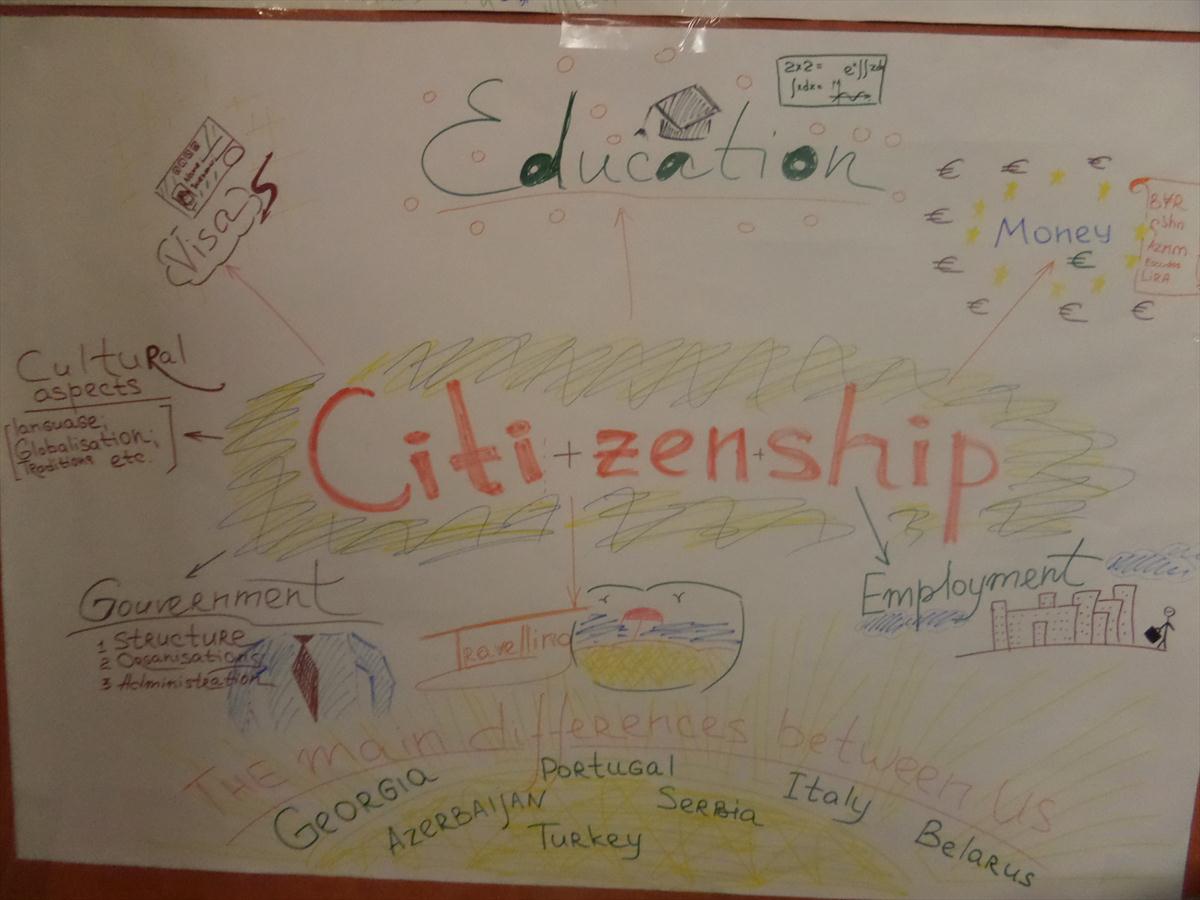 Education
2x2=
Visa
€ € €
€
€
€
€ € €
Money
BYR
Aznm
Escudos
LiRA
Cultural
aspects
language;
Globalisation;
Traditions etc.
Citi + zen + ship
Gouvernment
1 Structure
2 Organisations
3 Administration
Travelling
Employment
THE main differences between us
GEORGIA
AZERBAIJAN
PORTUGAL
Turkey
SERBIA
Italy
Belarus